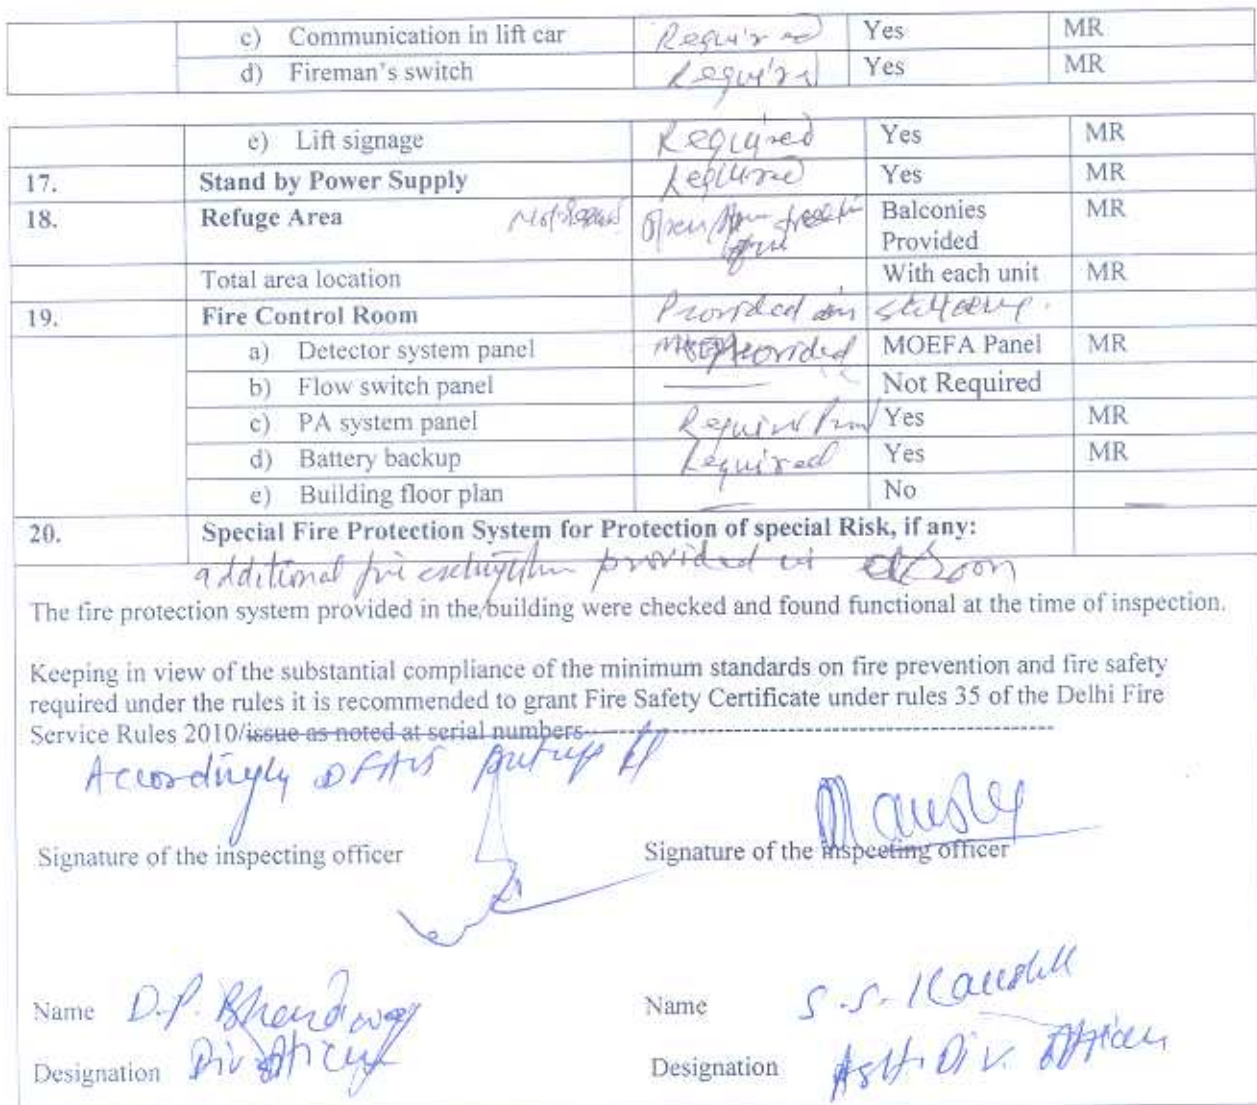 c) Communication in lift car Required Yes MR
d) Fireman's switch Required Yes MR
e) Lift signage Required Yes MR
17. Stand by Power Supply Required Yes MR
18. Refuge Area Open Balconies Provided MR
Total area location With each unit MR
19. Fire Control Room Provided
a) Detector system panel Provided MOEFA Panel MR
b) Flow switch panel — Not Required
c) PA system panel Required Yes MR
d) Battery backup Required Yes MR
e) Building floor plan — No —
20. Special Fire Protection System for Protection of special Risk, if any:
additional provided
The fire protection system provided in the building were checked and found functional at the time of inspection.
Keeping in view of the substantial compliance of the minimum standards on fire prevention and fire safety
required under the rules it is recommended to grant Fire Safety Certificate under rules 35 of the Delhi Fire
Service Rules 2010/issue as noted at serial numbers
Accordingly
Signature of the inspecting officer Signature of the inspecting officer
Name D.P. Name S.S.
Designation Div Officer Designation Asstt. Div. Officer